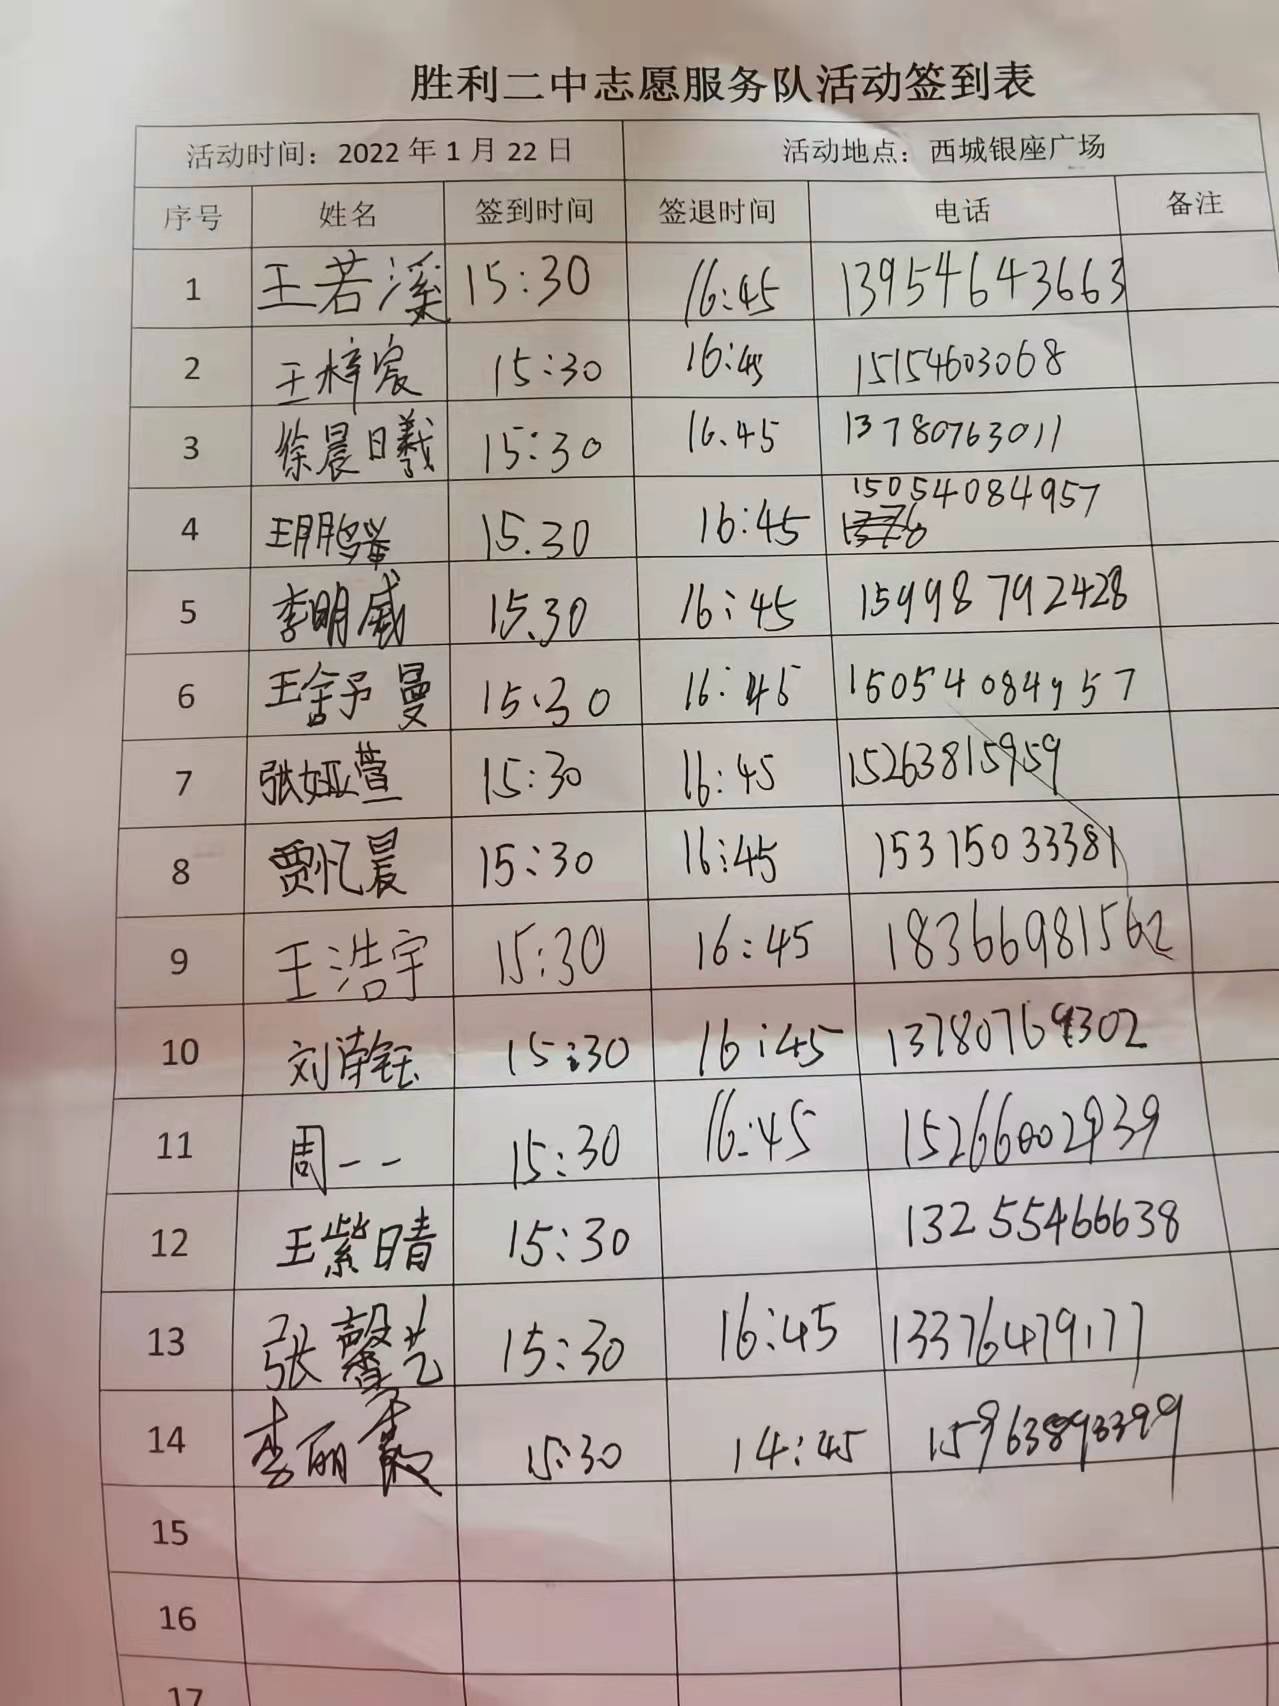 胜利二中志愿服务队活动签到表
活动时间：2022年1月22日 活动地点：西城银座广场
序号 姓名 签到时间 签退时间 电话 备注
1 王若溪 15:30 16:45 13954643663
2 王梓宸 15:30 16:45 15154603068
3 徐晨曦 15:30 16.45 13780763011
4 15.30 16:45 15054084957
5 李明威 15.30 16:45 15998792428
6 王舍予曼 15.30 16:45 15054084957
7 张娅萱 15:30 16:45 15263815959
8 贾忆晨 15:30 16:45 15315033381
9 王浩宇 15:30 16:45 18366981562
10 15:30 16:45
11 周一一 15:30 16:45 15266002939
12 王紫晴 15:30 13255466638
13 张馨艺 15:30 16:45 13376479177
14 15:30 14:45 15963893399
15
16
17